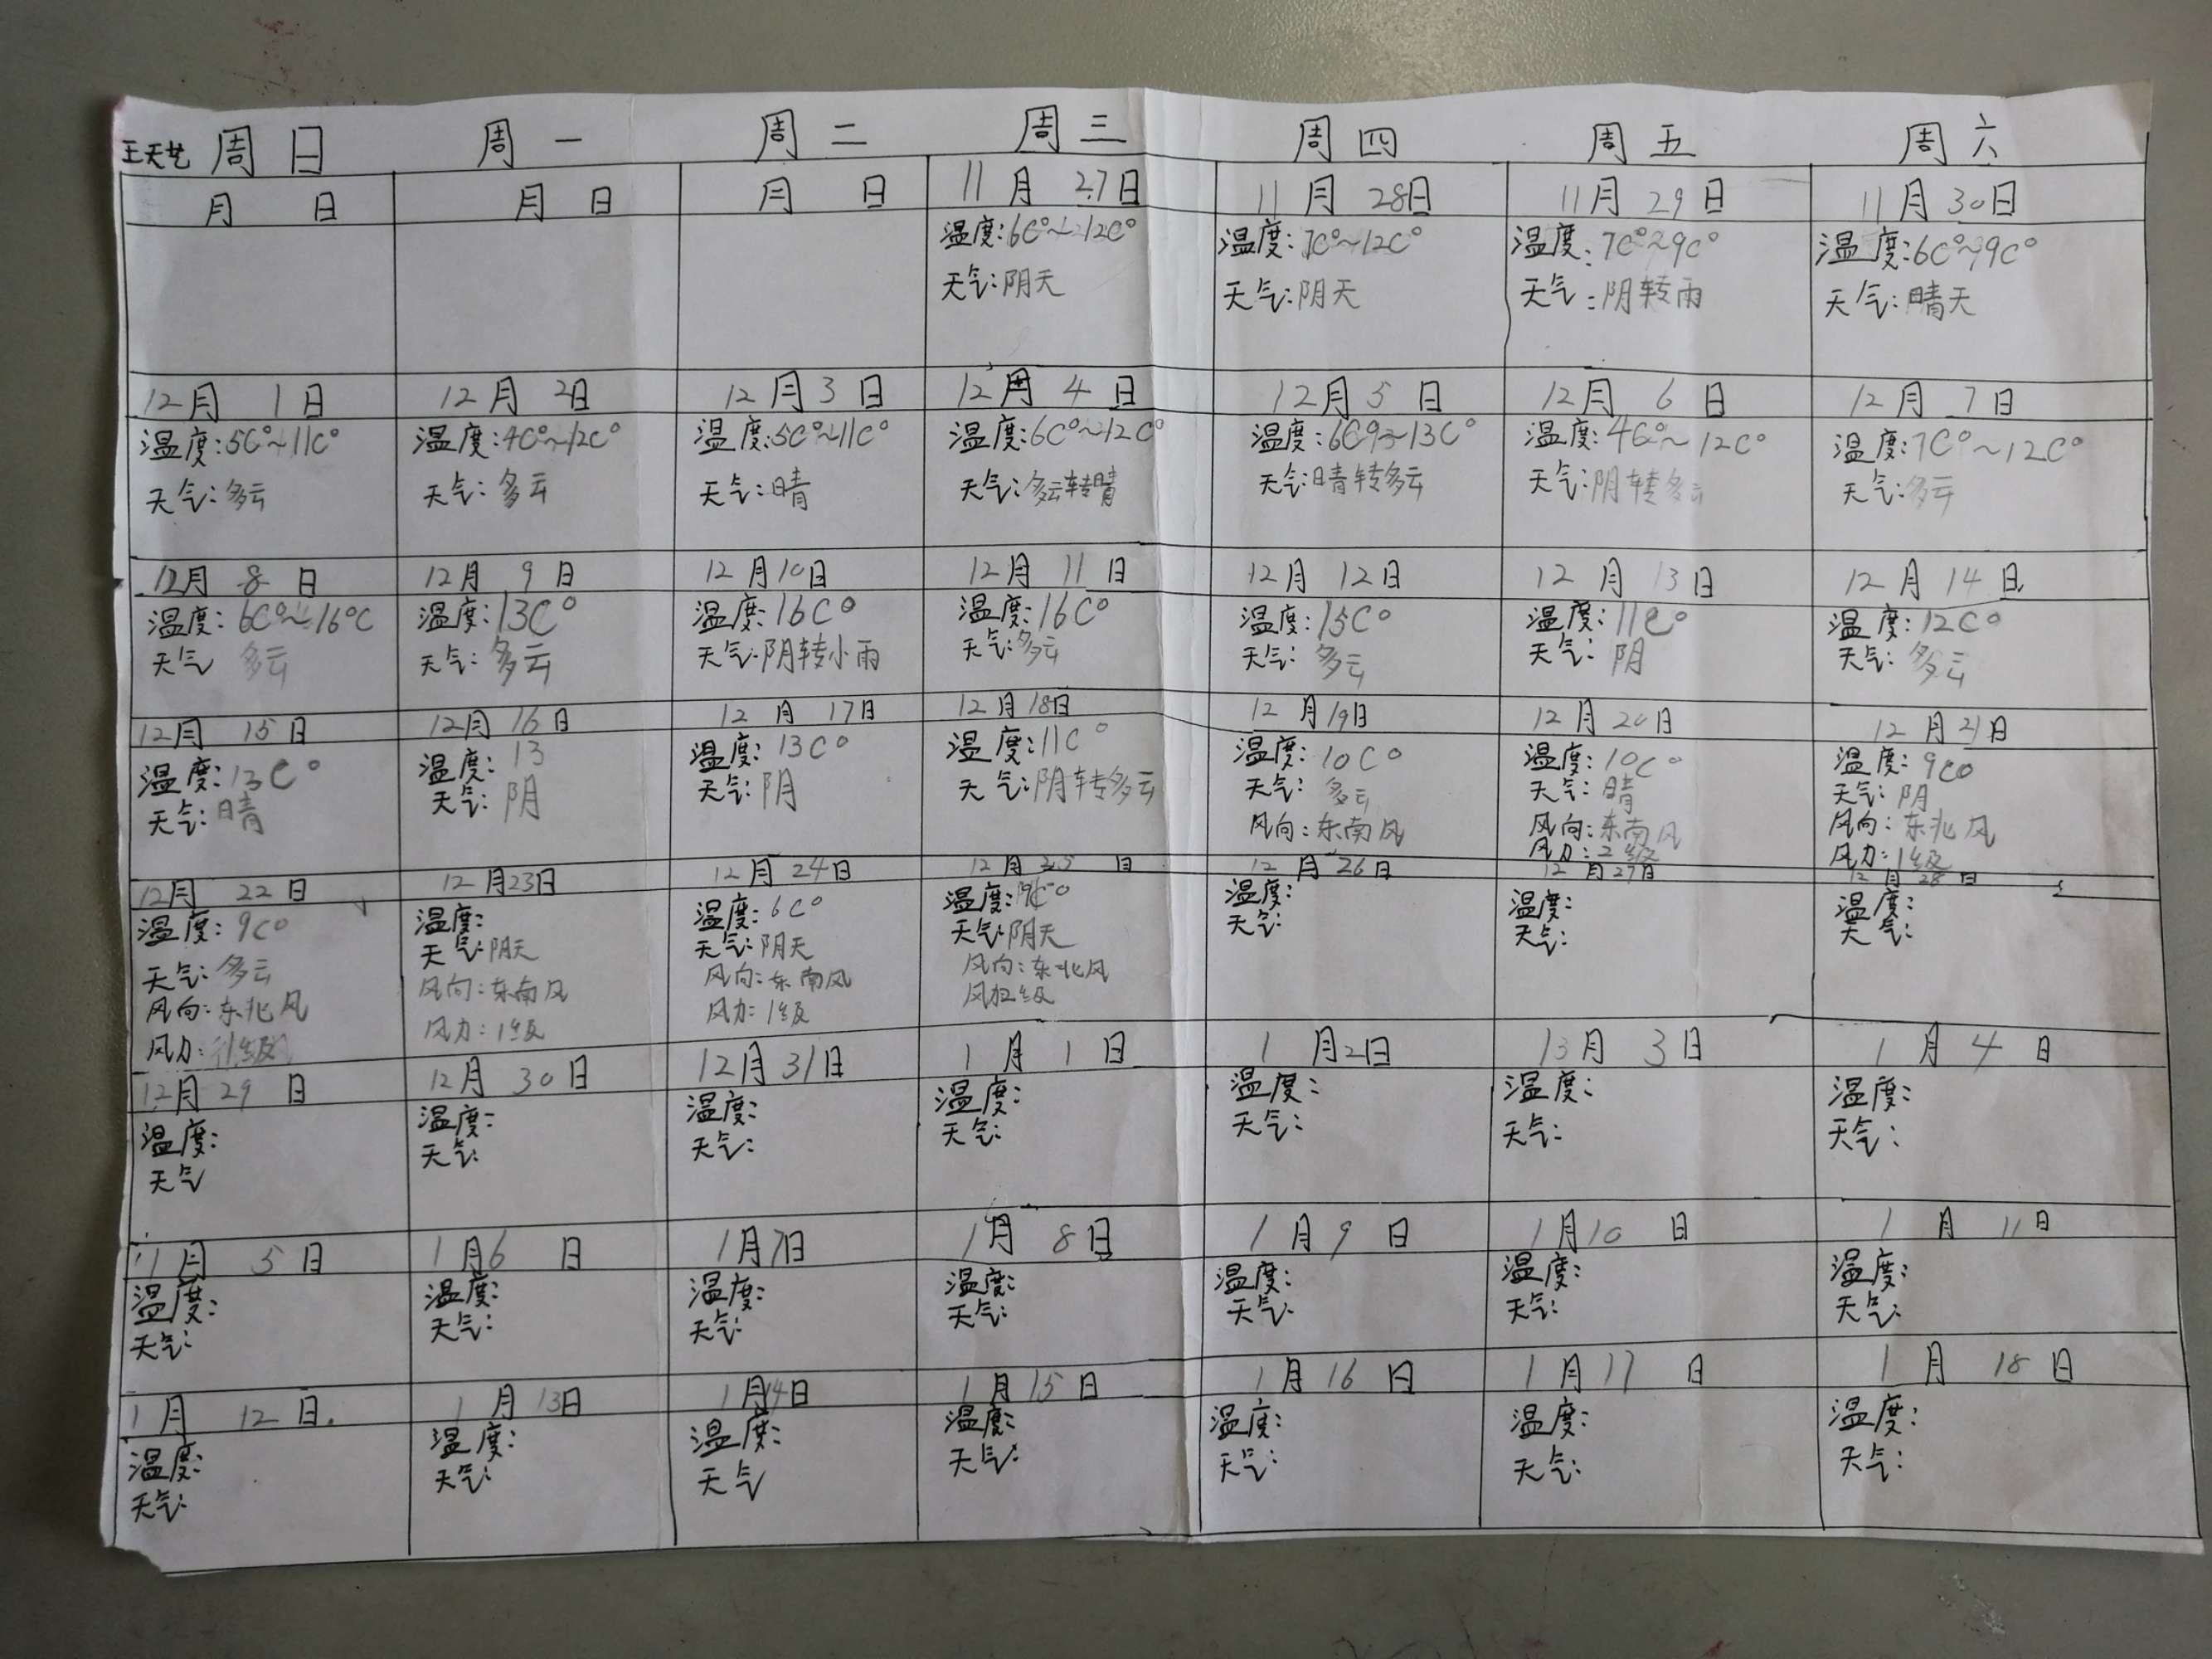 王天艺 周日 周一 周二 周三 周四 周五 周六
月 日 月 日 月 日 11月 27日 11月 28日 11月 29日 11月 30日
温度:6C°~12C° 温度:7C°~12C° 温度:7C°~9C° 温度:6C°~9C°
天气:阴天 天气:阴天 天气:阴转雨 天气:晴天
12月 1日 12月 2日 12月 3日 12月 4日 12月 5日 12月 6日 12月 7日
温度:5C°~11C° 温度:4C°~12C° 温度:5C°~11C° 温度:6C°~12C° 温度:6C°~13C° 温度:4C°~12C° 温度:7C°~12C°
天气:多云 天气:多云 天气:晴 天气:多云转晴 天气:晴转多云 天气:阴转多云 天气:多云
12月 8日 12月 9日 12月10日 12月 11日 12月 12日 12月 13日 12月 14日
温度:6C°~16°C 温度:13C° 温度:16C° 温度:16C° 温度:15C° 温度:11C° 温度:12C°
天气 多云 天气:多云 天气:阴转小雨 天气:多云 天气:多云 天气:阴 天气:多云
12月 15日 12月 16日 12月 17日 12月18日 12月19日 12月 20日 12月 21日
温度:13C° 温度:13 温度:13C° 温度:11C° 温度:10C° 温度:10C° 温度:9C°
天气:晴 天气:阴 天气:阴 天气:阴转多云 天气:多云 天气:晴 天气:阴
风向:东南风 风向:东南风 风向:东北风
风力:2级 风力:1级
12月 22日 12月23日 12月 24日 12月 25日 12月 26日 12月27日 12月 28日
温度:9C° 温度: 温度:6C° 温度: 温度: 温度: 温度:
天气:多云 天气:阴天 天气:阴天 天气:阴天 天气: 天气: 天气:
风向:东北风 风向:东南风 风向:东南风 风向:东北风
风力:1级 风力:1级 风力:1级 风力2级
12月 29日 12月 30日 12月 31日 1月 1日 1月2日 13月 3日 1月 4日
温度: 温度: 温度: 温度: 温度: 温度: 温度:
天气 天气: 天气: 天气: 天气: 天气: 天气:
1月 5日 1月6日 1月7日 1月 8日 1月 9日 1月10日 1月 11日
温度: 温度: 温度: 温度: 温度: 温度: 温度:
天气: 天气: 天气: 天气: 天气: 天气: 天气:
1月 12日. 1月 13日 1月14日 1月 15日 1月 16日 1月 17日 1月 18日
温度: 温度: 温度: 温度: 温度: 温度: 温度:
天气: 天气: 天气 天气: 天气: 天气: 天气: